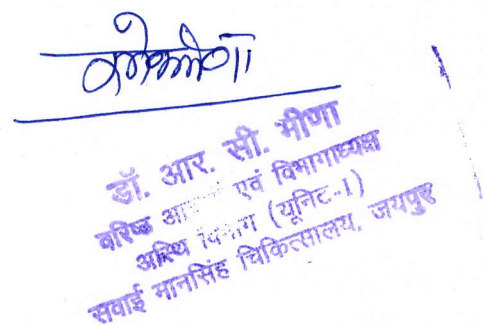 डॉ. आर. सी. मीणा
वरिष्ठ एवं विभागाध्यक्ष
अस्थि विभाग (यूनिट-I)
सवाई मानसिंह चिकित्सालय, जयपुर